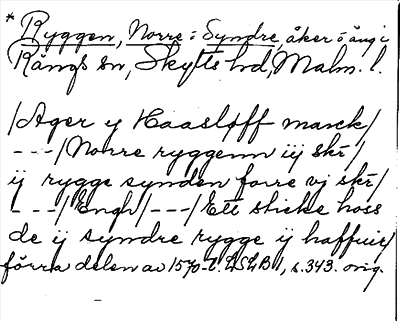 * Ryggen, Norre = Syndre, åker o äng i
Rängs sn, Skytts hd, Malm. l.
/Ager y Haasløff marck/
---/Norre ryggenn iij skr/
ij rygge synden forre vj skr/
---/Engh/---/Ett sticke hoss
de ij syndre rygge ij haffuit/
förra delen av 1570-t. s. 343. orig.